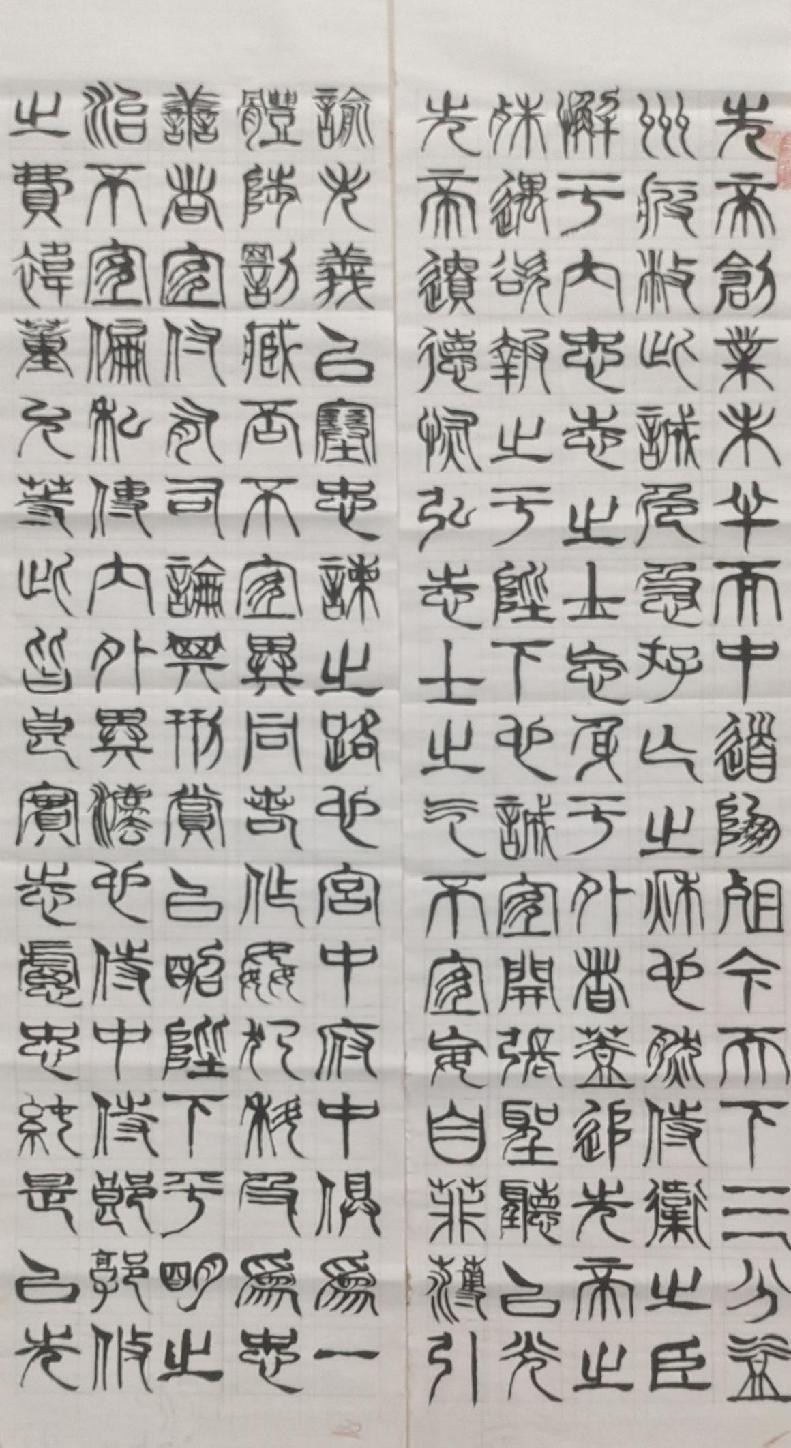 先帝創業未半而中道崩殂今天下三分益
州疲敝此誠危急存亡之秋也然侍衛之臣
懈于內忠志之士忘身于外者蓋追先帝之
殊遇欲報之于陛下也誠宜開張聖聽以光
先帝遺德恢弘志士之氣不宜妄自菲薄引
諭失義以塞忠諫之路也宮中府中俱為一
體陟罰臧否不宜異同若作姦犯科及為忠
善者宜付有司論其刑賞以昭陛下平明之
治不宜偏私使內外異法也侍中侍郎郭攸
之費禕董允等此皆良實志慮忠純是以先